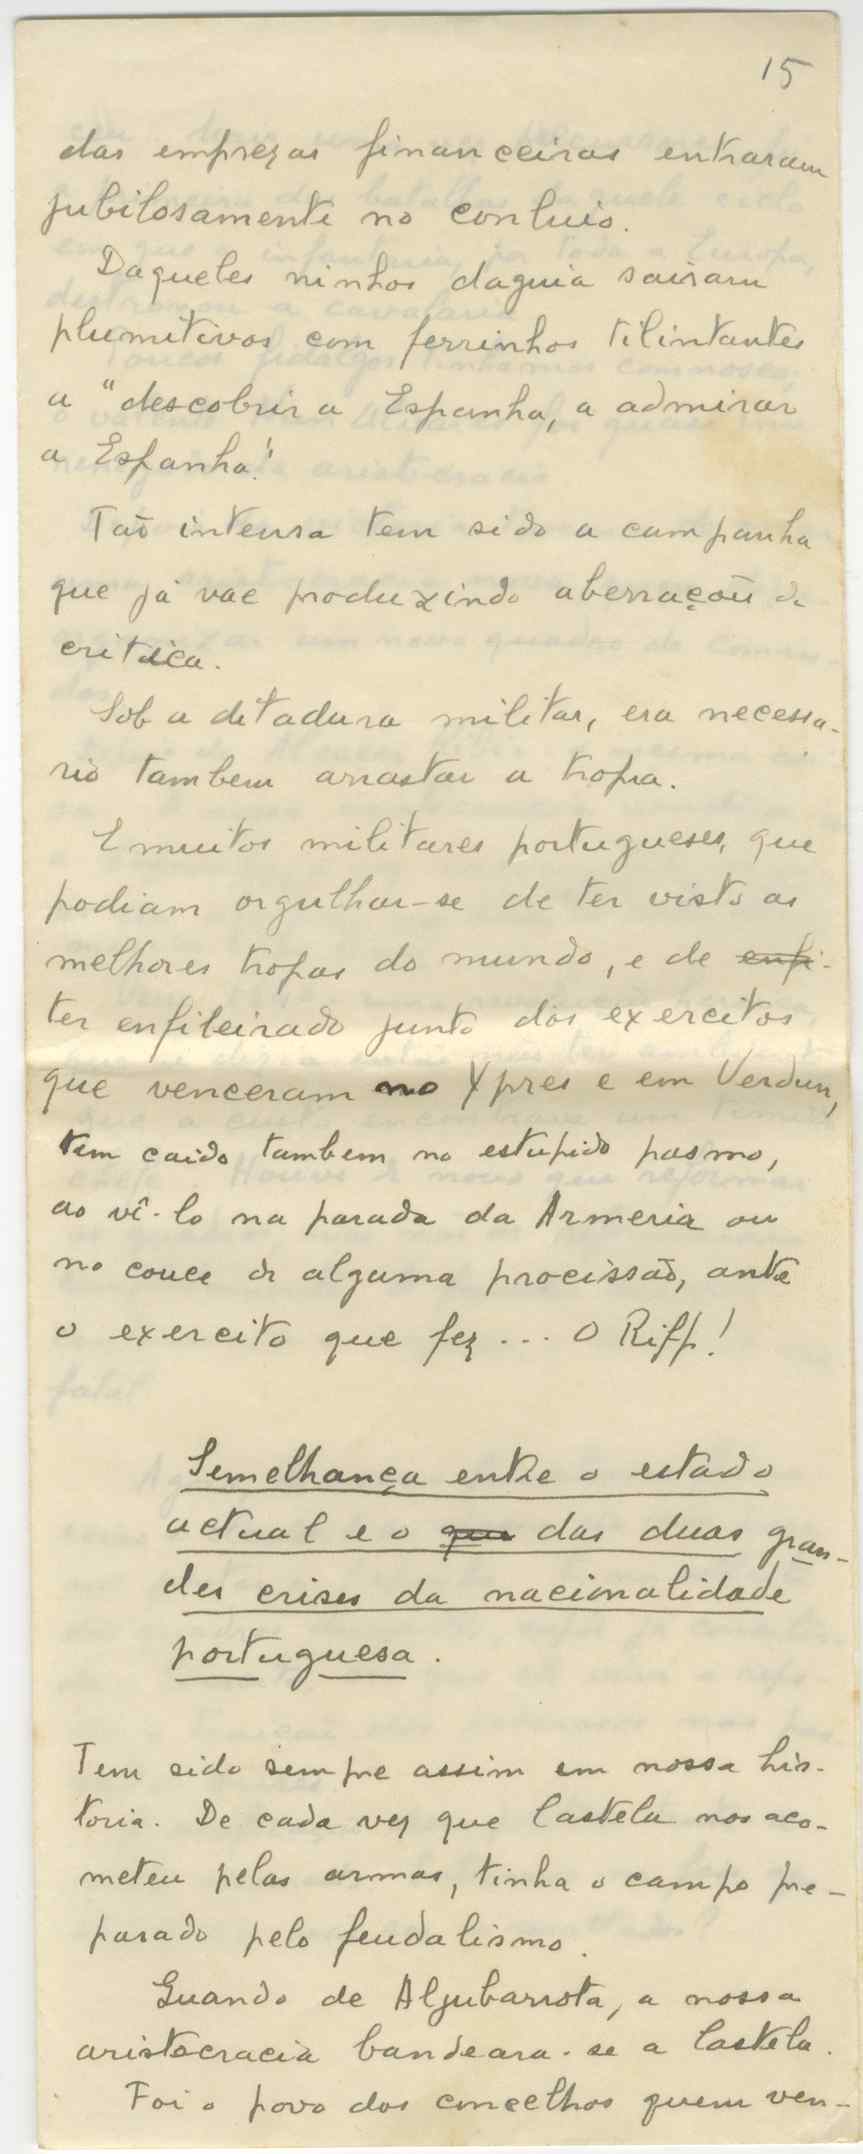 15
das emprezas financeiras entraram
jubilosamente no conluio.
Daqueles ninhos daguia sairam
plumitivos com ferrinhos tilintantes
a "descobrir a Espanha, a admirar
a Espanha".
Tão intensa tem sido a campanha
que já vae produzindo aberraçoẽs de
critica.
Sob a ditadura militar, era necessa-
rio tambem arrastar a tropa.
E muitos militares portugueses, que
podiam orgulhar-se de ter visto as
melhores tropas do mundo, e de enfi-
ter enfileirado junto dos exercitos
que venceram no Ypres e em Verdun,
tem caido tambem no estupido pasmo,
ao vê-lo na parada da Armeria ou
no couce de alguma procissão, ante
o exercito que fez ... O Riff!
Semelhança entre o estado
actual e o que das duas gran-
des crises da nacionalidade
portuguesa.
Tem sido sempre assim em nossa his-
toria. De cada vez que Castela nos aco-
meteu pelas armas, tinha o campo pre-
parado pelo feudalismo.
Quando de Aljubarrota, a nossa
aristocracia bandeara-se a Castela.
Foi o povo dos concelhos quem ven-